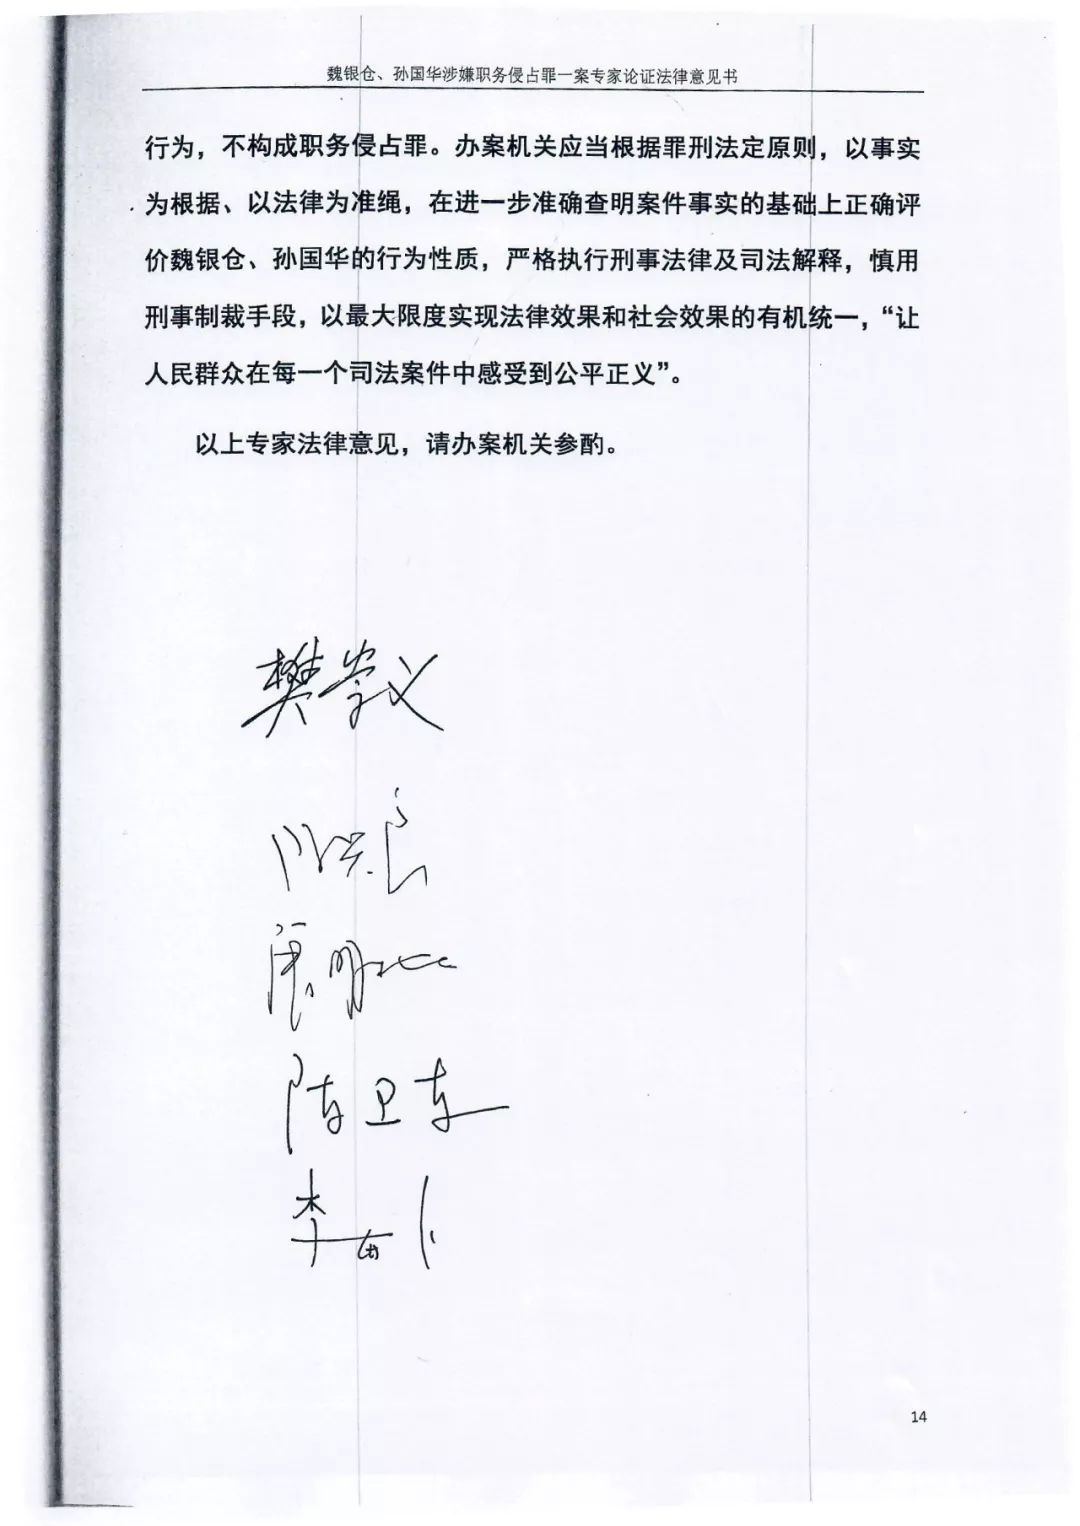 魏银仓、孙国华涉嫌职务侵占罪一案专家论证法律意见书
行为，不构成职务侵占罪。办案机关应当根据罪刑法定原则，以事实
为根据、以法律为准绳，在进一步准确查明案件事实的基础上正确评
价魏银仓、孙国华的行为性质，严格执行刑事法律及司法解释，慎用
刑事制裁手段，以最大限度实现法律效果和社会效果的有机统一，“让
人民群众在每一个司法案件中感受到公平正义”。
以上专家法律意见，请办案机关参酌。
樊崇义
陈卫东
14